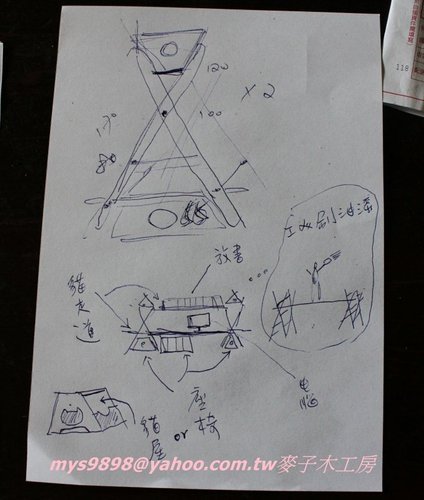 120
x2
100
170
80
工必刷油漆
放書
...
貓走道
電腦
座椅
or
貓屋
118
mys9898@yahoo.com.tw麥子木工房